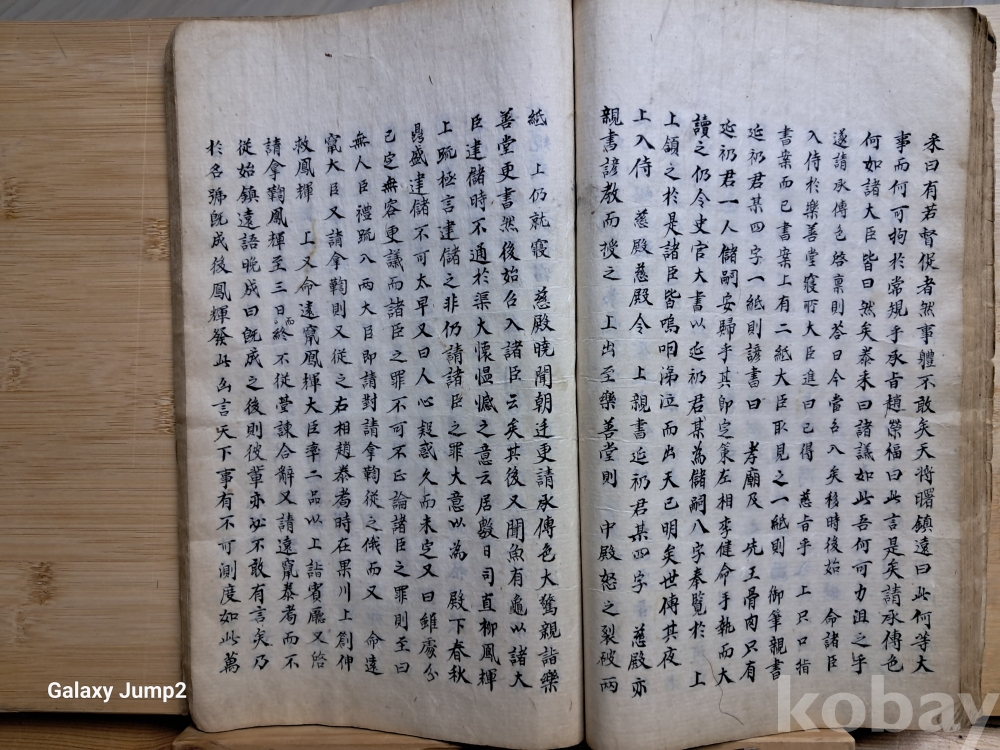 采曰有若督促者然事體不敢矣天將曙鎮遠曰此何等大
事而何可拘於常規乎承旨趙榮福曰此言是矣請承傳色
何如諸大臣皆曰然矣泰采曰諸議如此吾何可力沮之乎
遂請承傳色啓稟則答曰今當召入矣移時後始 命諸臣
入侍於樂善堂寢所大臣進曰已得 慈旨乎 上只口指
書案而已書案上有二紙大臣取見之一紙則 御筆親書
延礽君某四字一紙則諺書曰 孝廟及 先王骨肉只有
延礽君一人儲嗣安歸乎其卽定策左相李健命手執而大
讀之仍令史官大書以延礽君某爲儲嗣八字奉覽於 上
上領之於是諸臣皆嗚咽涕泣而出天已明矣世傳其夜
上入侍 慈殿慈殿令 上親書延礽君某四字 慈殿亦
親書諺敎而授之 上出至樂善堂則 中殿怒之裂破兩
紙 上仍就寢 慈殿曉聞朝廷更請承傳色大驚親詣樂
善堂更書然後始召入諸臣云矣其後又聞魚有龜以諸大
臣建儲時不通於渠大懷慍憾之意云居數日司直柳鳳輝
上疏極言建儲之非仍請諸臣之罪大意以爲 殿下春秋
鼎盛建儲不可太早又曰人心疑惑久而未定又曰雖處分
已定無容更議而諸臣之罪不可不正論諸臣之罪則至曰
無人臣禮疏入兩大臣即請對請拿鞫從之俄而又 命遠
竄大臣又請拿鞫則又從之右相趙泰耉時在果川上劄伸
救鳳輝 上又命遠竄鳳輝大臣率二品以上詣賓廳又啓
請拿鞫鳳輝至三日而終不從臺諫合辭又請遠竄泰耉而不
從始鎮遠語晩成曰旣成之後則彼輩亦必不敢有言矣乃
於名號旣成後鳳輝發此凶言天下事有不可測度如此萬
Galaxy Jump2
kobay